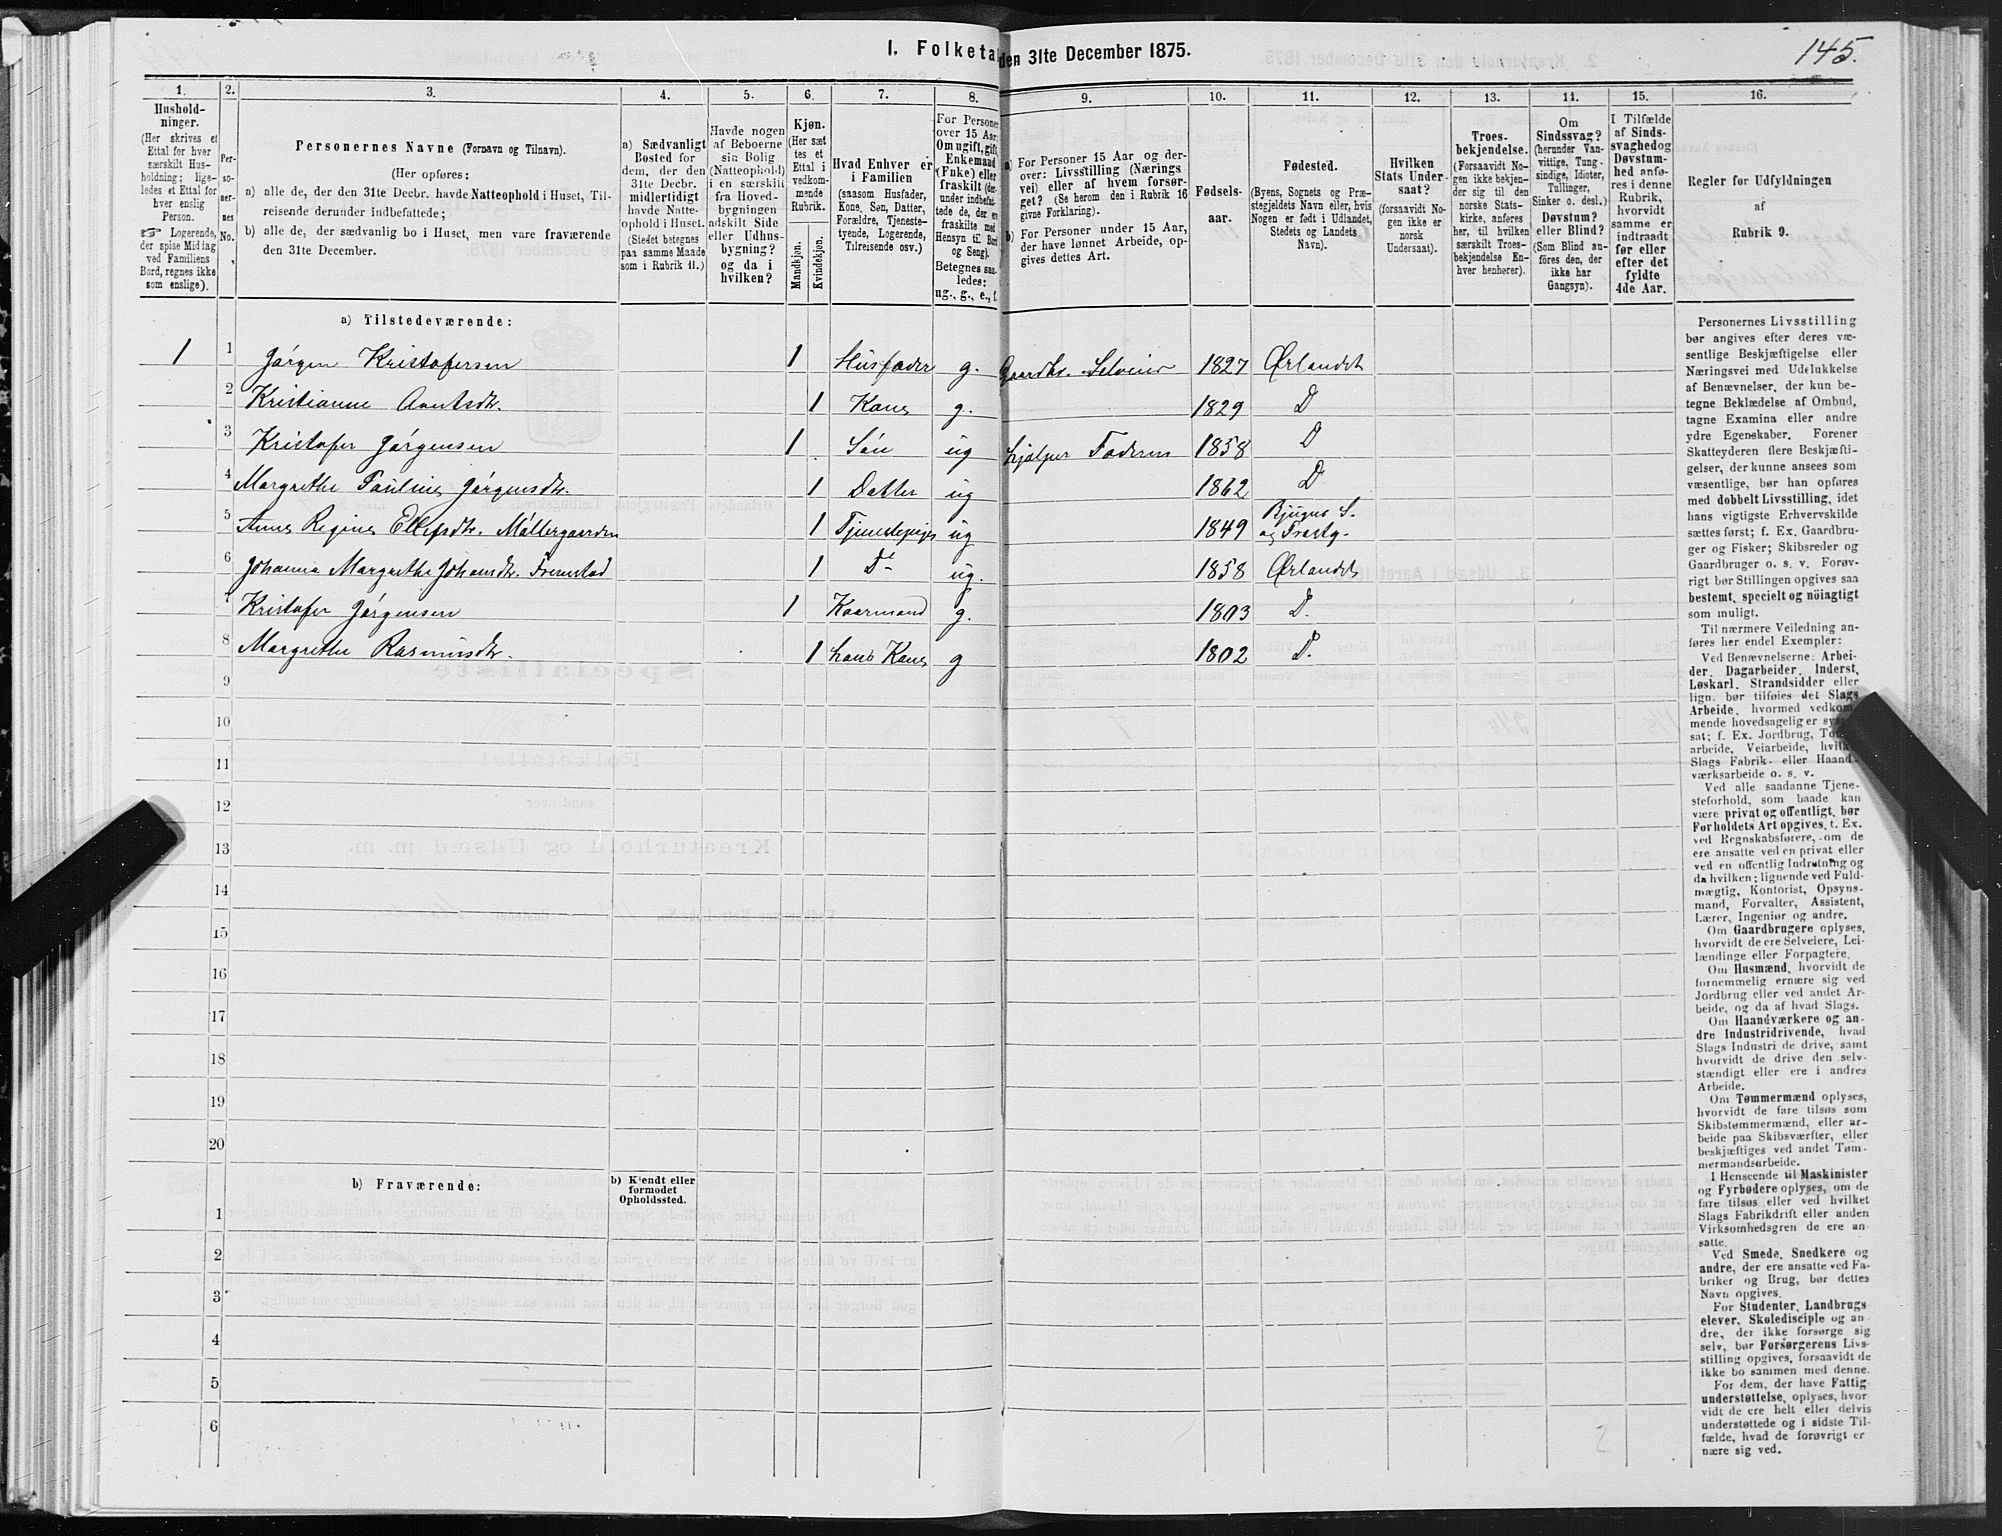 I. Folketal den 31te December 1875.
145.
1.
Hushold-
ninger.
(Her skrives et
Ettal for hver
særskilt Hus-
holdning; lige-
ledes et Ettal for
hver enslig
Person.
☞ Logerende,
der spise Middag
ved Familiens
Bord, regnes ikke
som enslige).
2.
Per-
so-
ner-
nes
No.
3.
Personernes Navne (Fornavn og Tilnavn).
(Her opføres:
a) alle de, der den 31te Decbr. havde Natteophold i Huset, Til-
reisende derunder indbefattede;
b) alle de, der sædvanlig bo i Huset, men vare fraværende
den 31te December.
4.
a) Sædvanligt
Bosted for
dem, der den
31te Decbr.
midlertidigt
havde Natte-
ophold i Huset.
(Stedet betegnes
paa samme Maade
som i Rubrik 11.)
5.
Havde nogen
af Beboerne
sin Bolig
(Natteophold)
i en særskilt
fra Hoved-
bygningen
adskilt Side
eller Udhus-
bygning?
og da i
hvilken?
6.
Kjøn.
(Her sæt
tes et
Ettal i
vedkom-
mende
Rubrik.
Mandkjøn.
Kvindekjøn.
7.
Hvad Enhver er
i Familien
(saasom Husfader,
Kone, Søn, Datter,
Forældre, Tjeneste-
tyende, Logerende,
Tilreisende osv.)
8.
For Personer
over 15 Aar:
Om ugift, gift,
Enkemand
(Enke) eller
fraskilt (der-
under indbefat-
tede de, der er
fraskilte med
Hensyn til Bord
og Seng).
Betegnes saa-
ledes:
ug., g., e., f.
9.
a) For Personer 15 Aar og der-
over: Livsstilling (Nærings
vei) eller af hvem forsør-
get? (Se herom den i Rubrik 16
givne Forklaring).
b) For Personer under 15 Aar,
der have lønnet Arbeide, op-
gives dettes Art.
10.
Fødsels-
aar.
11.
Fødested.
(Byens, Sognets og Præ-
stegjeldets Navn eller, hvis
Nogen er født i Udlandet,
Stedets og Landets
Navn).
12.
Hvilken
Stats Under-
saat?
(forsaavidt No-
gen ikke er
norsk
Undersaat).
13.
Troes-
bekjendelse.
(Forsaavidt No-
gen ikke bekjen-
der sig til den
norske Stats-
kirke, anføres
her, til hvilken
særskilt Troes-
bekjendelse En-
hver henhører).
14.
Om
Sindssvag?
(herunder Van-
vittige, Tung-
sindige, Idioter,
Tullinger,
Sinker o. desl.)
Døvstum?
eller Blind?
(Som Blind an-
føres den, der
ikke har
Gangsyn).
15.
I Tilfælde
af Sinds-
svaghed og
Døvstum-
hed anfø-
res i denne
Rubrik,
hvorvidt
samme er
indtraadt
før eller
efter det
fyldte
4de Aar.
16.
Regler for Udfyldningen
af
Rubrik 9.
a) Tilstedeværende:
1 1 Jørgen Kristofersen 1 Husfader g. Gaardbr. Selveier 1827 Ørlandet
2 Kristianne Arntsdtr. 1 Kone g. 1829 D
3 Kristofer Jørgensen 1 Søn ug Hjelper Faderen 1858 D
4 Margrethe Pauline Jørgensdtr. 1 Datter ug 1862 D
5 Anne Regine Ellefsdtr. Møllergaarden 1 Tjenestepige ug 1849 Bjugns S. og Præstg.
6 Johanna Margrethe Johansdtr. 1 D. ug. 1858 Ørlandet
7 Kristofer Jørgensen 1 Kaarmand g. 1803 D.
8 Margrethe Rasmusdtr. 1 hans Kone g 1802 D.
9
10
11
12
13
14
15
16
17
18
19
20
b) Fraværende:
b) Kjendt eller
formodet
Opholdssted.
1
2
3
4
5
6
Personernes Livsstilling
bør angives efter deres væ-
sentlige Beskjæftigelse eller
Næringsvei med Udelukkelse
af Benævnelser, der kun be-
tegne Beklædelse af Ombud,
tagne Examina eller andre
ydre Egenskaber. Forener
Skatteyderen flere Beskjæfti-
gelser, der kunne ansees som
væsentlige, bør han opføres
med dobbelt Livsstilling, idet
hans vigtigste Erhvervskilde
sættes først; f. Ex. Gaardbru-
ger og Fisker; Skibsreder og
Gaardbruger o. s. v. Forøv-
rigt bør Stillingen opgives saa
bestemt, specielt og nöiagtigt
som muligt.
Til nærmere Veiledning an-
føres her endel Exempler:
Ved Benævnelserne: Arbei-
der, Dagarbeider, Inderst,
Løskarl, Strandsidder eller
lign. bør tilføies det Slags
Arbeide, hvormed vedkom-
mende hovedsagelig er syssel-
sat; f. Ex. Jordbrug, Tomte-
arbeide, Veiarbeide, hvilket
Slags Fabrik- eller Haand-
værksarbeide o. s. v.
Ved alle saadanne Tjene-
steforhold, som baade kan
være privat og offentligt, bør
Forholdets Art opgives, t. Ex.
ved Regnskabsførere, om de
ere ansatte ved en privat eller
ved en offentlig Indretning og
da hvilken; lignende ved Fuld-
mægtig, Kontorist, Opsyns-
mand, Forvalter, Assistent,
Lærer, Ingeniør og andre.
Om Gaardbrugere oplyses,
hvorvidt de ere Selveiere, Lei-
lændinge eller Forpagtere.
Om Husmænd, hvorvidt de
fornemmelig ernære sig ved
Jordbrug eller ved andet Ar-
beide, og da af hvad Slags.
Om Haandværkere og an-
dre Industridrivende, hvad
Slags Industri de drive, samt
hvorvidt de drive den selv-
stændigt eller ere i andres
Arbeide.
Om Tømmermænd oplyses,
hvorvidt de fare tilsøs som
Skibstømmermænd, eller ar-
beide paa Skibsværfter, eller
beskjæftiges ved andet Tøm-
mermandsarbeide.
I Henseende til Maskinister
og Fyrbødere oplyses, om de
fare tilsøs eller ved hvilket
Slags Fabrikdrift eller anden
Virksomhedsgren de ere an-
satte.
Ved Smede, Snedkere og
andre, der ere ansatte ved Fa-
briker og Brug, bør dettes
Navn opgives.
For Studenter, Landbrugs
elever, Skoledisciple og an-
dre, der ikke forsørge sig
selv, bør Forsørgerens Livs-
stilling opgives, forsaavidt de
ikke bo sammen med denne.
For dem, der have Fattig
understøttelse, oplyses, hvor
vidt de ere helt eller delvis
understøttede og i sidste Til-
fælde, hvad de forøvrigt er
nære sig ved.
2